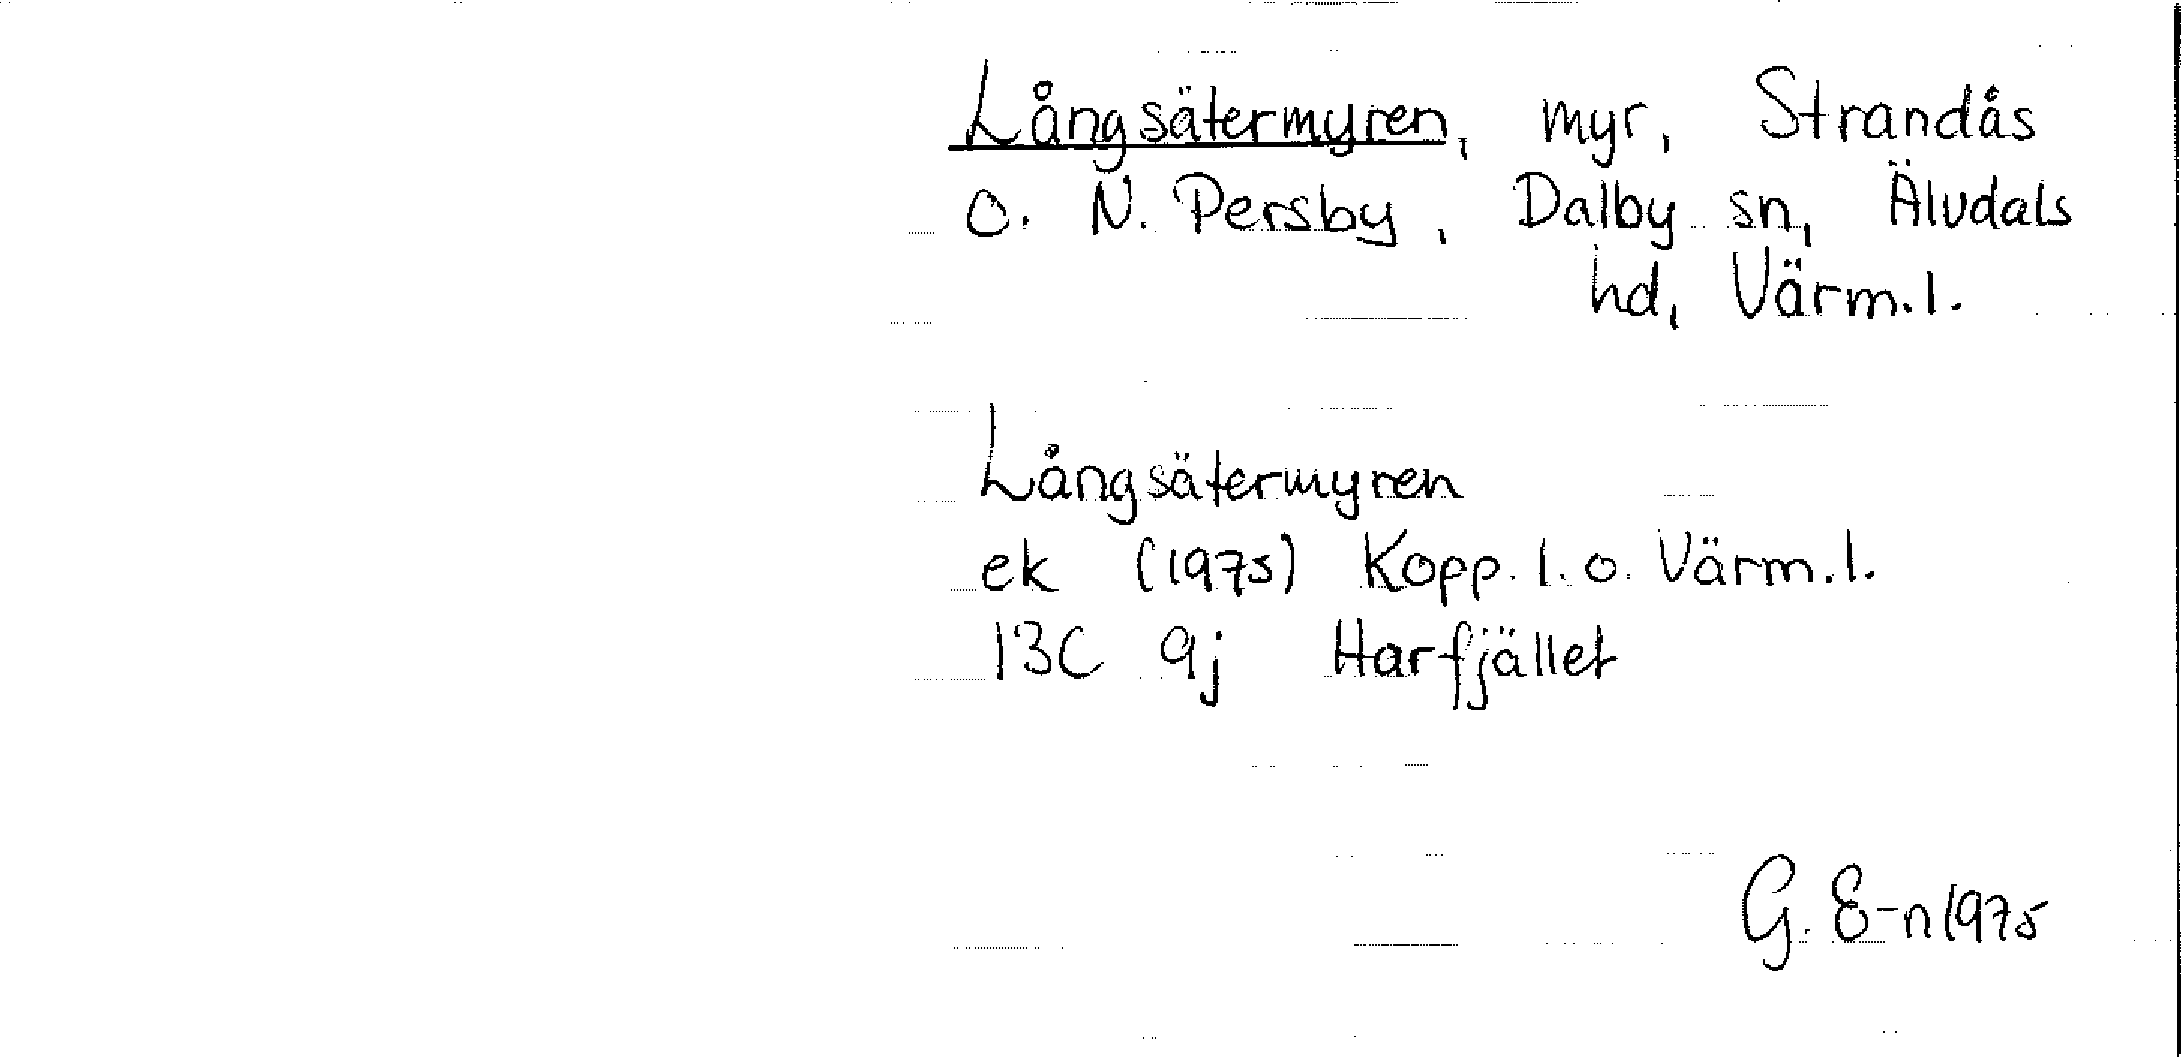 Långsätermyren, myr, Strandås
o. N. Persby, Dalby sn, Älvdals
hd, Värm.l.
Långsätermyren
ek (1975) Kopp. l. o. Värm.l.
13C 9j Harfjället
G. E-n 1975